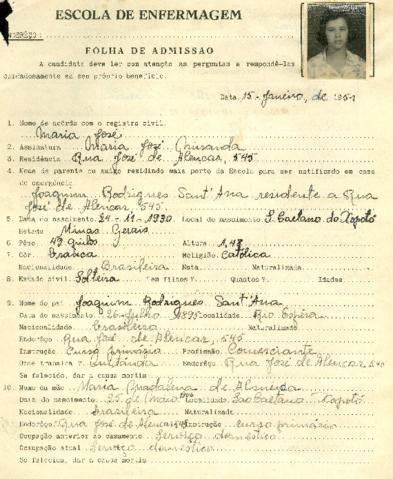 ESCOLA DE ENFERMAGEM
ENDEREÇO:
FOLHA DE ADMISSÃO
A candidata deve ler com atenção as perguntas e respondê-las
cuidadosamente em seu próprio benefício.
Data 15 - Janeiro, de 1951
1. Nome de acôrdo com o registro civil.
Maria José
2. Assinatura Maria José Miranda
3. Residência Rua José de Alencar, 545
4. Nome de parente ou amigo residindo mais perto da Escola para ser notificado em caso
de emergência
Joaquim Rodrigues Sant'Ana residente a Rua
José de Alencar, 545
5. Data do nascimento 24-11-1930 Local do nascimento S. Caetano do Xopotó
Estado Minas Gerais
6. Pêso 49 quilos Altura 1,48
7. Côr branca Religião Católica
Nacionalidade Brasileira Nata Naturalizada
8. Estado civil Solteira Tem filhos? Quantos? Idades
9. Nome do pai Joaquim Rodrigues Sant'Ana
Data do nascimento 26-Julho 1895 Localidade Rio Espera
Nacionalidade brasileira Naturalizado
Endereço Rua José de Alencar, 545
Instrução Curso primário Profissão Comerciante
Onde trabalha? Endereço Rua José de Alencar, 545
Se falecido, dar a causa mortis
10. Nome da mãe Maria Magdalena de Almeida
Data do nascimento 25 de Maio Localidade São Caetano Xopotó
Nacionalidade brasileira Naturalizada
Endereço Rua José de Alencar Instrução curso primário
Ocupação anterior ao casamento Serviço doméstico
Ocupação atual Serviço doméstico
Se falecida, dar a causa mortis